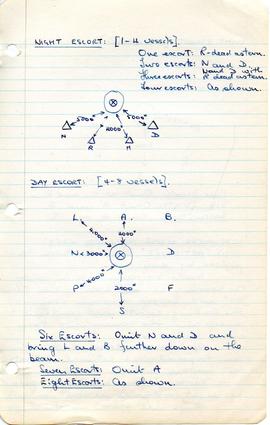 NIGHT ESCORT: [1-4 vessels].
One escort: R-dead astern.
Two escorts: N and D.
Three escorts: N and D with R dead astern.
Four escorts: As shown.
5000x 5000x
4000x
N R M D
DAY ESCORT: [4-8 vessels].
L A. B.
4000x 4000x
N 3000x D
P 4000x 2000x F
S
Six Escorts: Omit N and D and
bring L and B further down on the
beam.
Seven Escorts: Omit A
Eight Escorts: As shown.